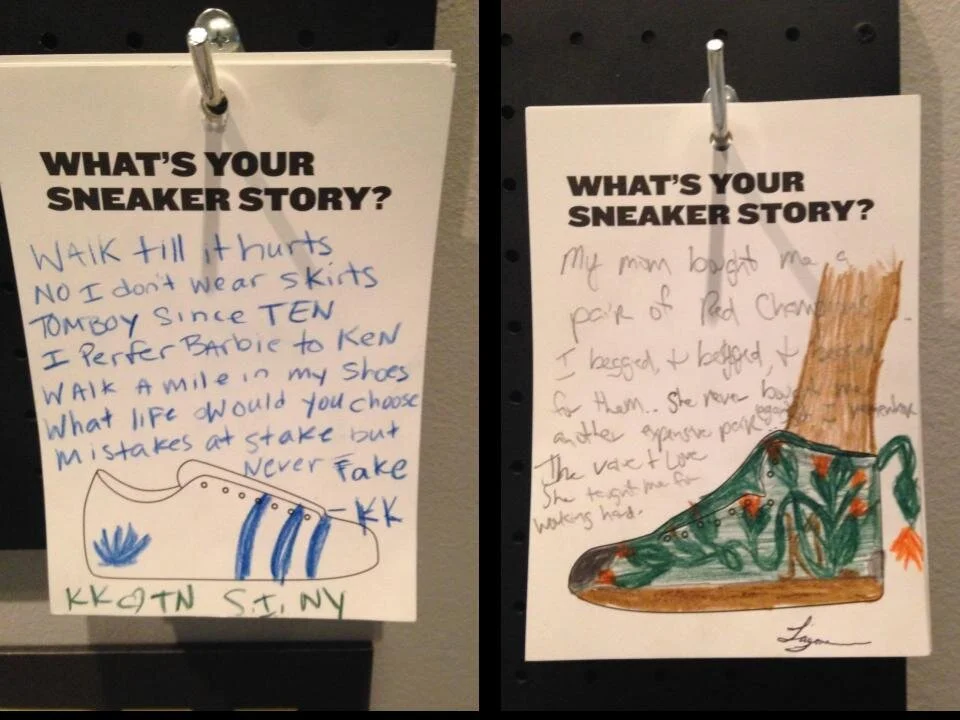 WHAT'S YOUR
SNEAKER STORY?
WALK till it hurts
NO I don't wear skirts
TOMBOY Since TEN
I Perfer Barbie to KEN
WALK A mile in my Shoes
What life would you choose
mistakes at stake but
Never Fake
-KK
KK♡TN S.I. NY
WHAT'S YOUR
SNEAKER STORY?
My mom bought me a
pair of Red
I begged, & begged, & begged
for them.. She never bought me
another expensive pair again I remember
The value & Love
She taught me for
working hard.